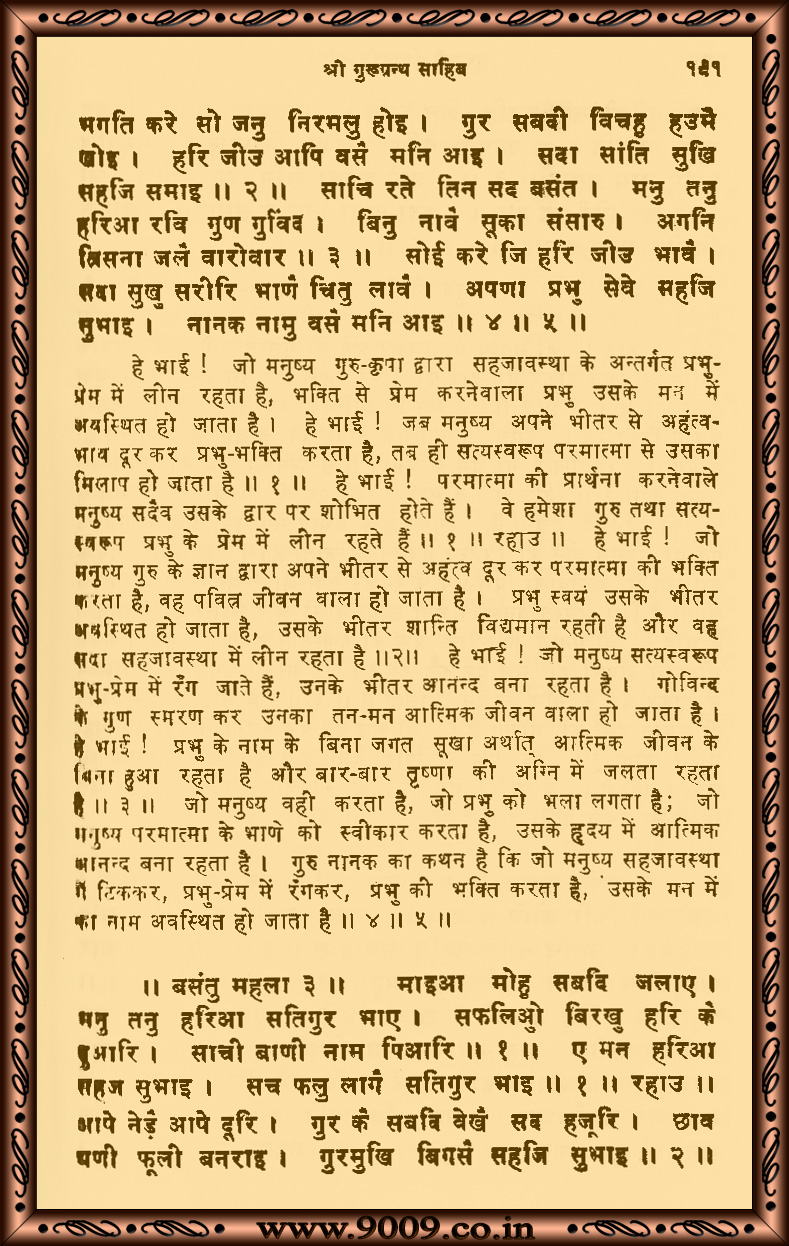 श्री गुरूग्रन्थ साहिब १९१
भगति करे सो जनु निरमलु होइ । गुर सबदी विचहु हउमै
खोइ । हरि जीउ आपि वसै मनि आइ । सदा सांति सुखि
सहजि समाइ ॥ २ ॥ साचि रते तिन सद बसंत । मनु तनु
हरिआ रवि गुण गुविंद । बिनु नावै सूका संसारु । अगनि
त्रिसना जलै वारोवार ॥ ३ ॥ सोई करे जि हरि जीउ भावै ।
सदा सुखु सरीरि भाणै चितु लावै । अपणा प्रभु सेवे सहजि
सुभाइ । नानक नामु वसै मनि आइ ॥ ४ ॥ ५ ॥
हे भाई ! जो मनुष्य गुरु-कृपा द्वारा सहजावस्था के अन्तर्गत प्रभु-
प्रेम में लीन रहता है, भक्ति से प्रेम करनेवाला प्रभु उसके मन में
अवस्थित हो जाता है । हे भाई ! जब मनुष्य अपने भीतर से अहंत्व-
भाव दूर कर प्रभु-भक्ति करता है, तब ही सत्यस्वरूप परमात्मा से उसका
मिलाप हो जाता है ॥ १ ॥ हे भाई ! परमात्मा की प्रार्थना करनेवाले
मनुष्य सदैव उसके द्वार पर शोभित होते हैं । वे हमेशा गुरु तथा सत्य-
स्वरूप प्रभु के प्रेम में लीन रहते हैं ॥ १ ॥ रहाउ ॥ हे भाई ! जो
मनुष्य गुरु के ज्ञान द्वारा अपने भीतर से अहंत्व दूर कर परमात्मा की भक्ति
करता है, वह पवित्र जीवन वाला हो जाता है । प्रभु स्वयं उसके भीतर
अवस्थित हो जाता है, उसके भीतर शान्ति विद्यमान रहती है और वह
सदा सहजावस्था में लीन रहता है ॥२॥ हे भाई ! जो मनुष्य सत्यस्वरूप
प्रभु-प्रेम में रँग जाते हैं, उनके भीतर आनन्द बना रहता है । गोविन्द
के गुण स्मरण कर उनका तन-मन आत्मिक जीवन वाला हो जाता है ।
हे भाई ! प्रभु के नाम के बिना जगत सूखा अर्थात् आत्मिक जीवन के
बिना हुआ रहता है और बार-बार तृष्णा की अग्नि में जलता रहता
है ॥ ३ ॥ जो मनुष्य वही करता है, जो प्रभु को भला लगता है; जो
मनुष्य परमात्मा के भाणे को स्वीकार करता है, उसके हृदय में आत्मिक
आनन्द बना रहता है । गुरु नानक का कथन है कि जो मनुष्य सहजावस्था
में टिककर, प्रभु-प्रेम में रँगकर, प्रभु की भक्ति करता है, उसके मन में
का नाम अवस्थित हो जाता है ॥ ४ ॥ ५ ॥
॥ बसंतु महला ३ ॥ माइआ मोहु सबदि जलाए ।
मनु तनु हरिआ सतिगुर भाए । सफलिओु बिरखु हरि कै
दुआरि । साची बाणी नाम पिआरि ॥ १ ॥ ए मन हरिआ
सहज सुभाइ । सच फलु लागै सतिगुर भाइ ॥ १ ॥ रहाउ ॥
आपे नेड़ै आपे दूरि । गुर कै सबदि वेखै सद हजूरि । छाव
घणी फूली बनराइ । गुरमुखि बिगसै सहजि सुभाइ ॥ २ ॥
www.9009.co.in